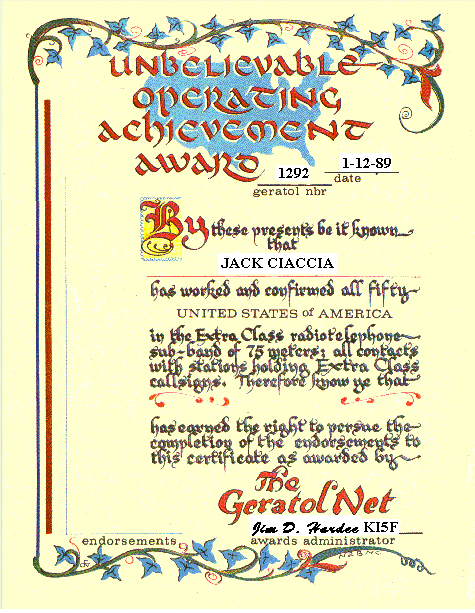 UNBELIEVABLE
OPERATING
ACHIEVEMENT
AWARD
1292
1-12-89
geratol nbr
date
By these presents be it known
that
JACK CIACCIA
has worked and confirmed all fifty
UNITED STATES of AMERICA
in the Extra Class radiotelephone
sub-band of 75 meters; all contacts
with stations holding Extra Class
callsigns. Therefore know ye that
has earned the right to persue the
completion of the endorsements to
this certificate as awarded by
The
Geratol Net
Jim D. Hardee KI5F
endorsements
awards administrator